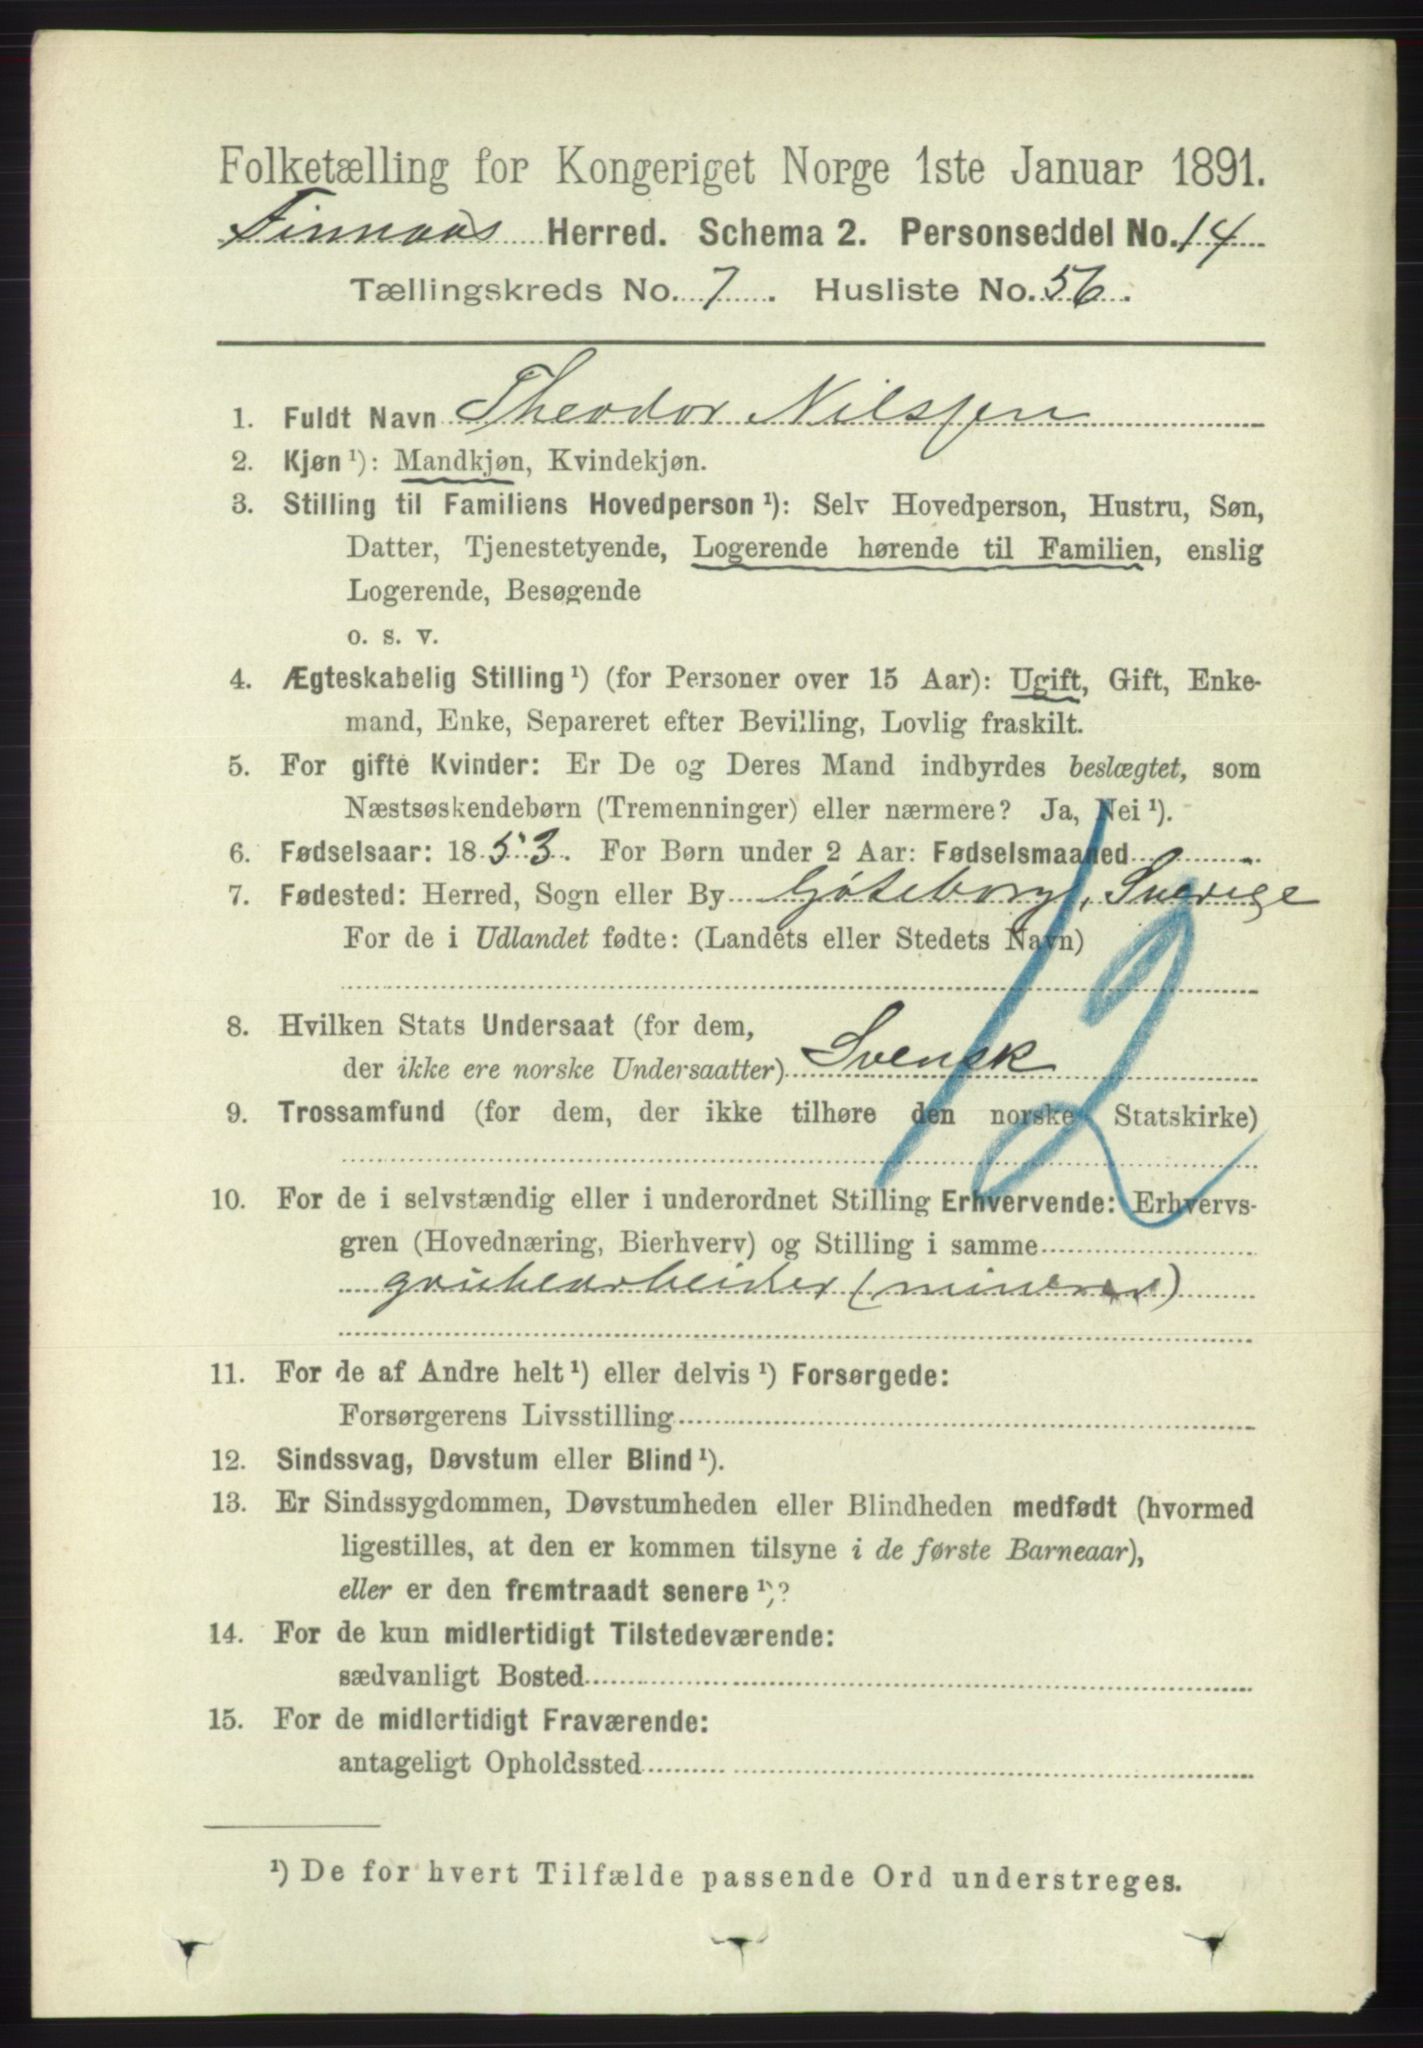 Folketælling for Kongeriget Norge 1ste Januar 1891.
Finnaas Herred. Schema 2. Personseddel No. 14
Tællingskreds No. 7. Husliste No. 56.
1. Fuldt Navn Theodor Nilssen
2. Kjøn ¹): Mandkjøn, Kvindekjøn.
3. Stilling til Familiens Hovedperson ¹): Selv Hovedperson, Hustru, Søn,
Datter, Tjenestetyende, Logerende hørende til Familien, enslig
Logerende, Besøgende
o. s. v.
4. Ægteskabelig Stilling ¹) (for Personer over 15 Aar): Ugift, Gift, Enke-
mand, Enke, Separeret efter Bevilling, Lovlig fraskilt.
5. For gifte Kvinder: Er De og Deres Mand indbyrdes beslægtet, som
Næstsøskendebørn (Tremenninger) eller nærmere? Ja, Nei ¹).
6. Fødselsaar: 1853. For Børn under 2 Aar: Fødselsmaaned
7. Fødested: Herred, Sogn eller By Göteborg, Sverige
For de i Udlandet fødte: (Landets eller Stedets Navn)
12
8. Hvilken Stats Undersaat (for dem,
der ikke ere norske Undersaatter) Svensk
9. Trossamfund (for dem, der ikke tilhøre den norske Statskirke)
10. For de i selvstændig eller i underordnet Stilling Erhvervende: Erhvervs-
gren (Hovednæring, Bierhverv) og Stilling i samme
grubearbeider (minerer)
11. For de af Andre helt ¹) eller delvis ¹) Forsørgede:
Forsørgerens Livsstilling
12. Sindssvag, Døvstum eller Blind ¹).
13. Er Sindssygdommen, Døvstumheden eller Blindheden medfødt (hvormed
ligestilles, at den er kommen tilsyne i de første Barneaar),
eller er den fremtraadt senere ¹)?
14. For de kun midlertidigt Tilstedeværende:
sædvanligt Bosted
15. For de midlertidigt Fraværende:
antageligt Opholdssted
¹) De for hvert Tilfælde passende Ord understreges.